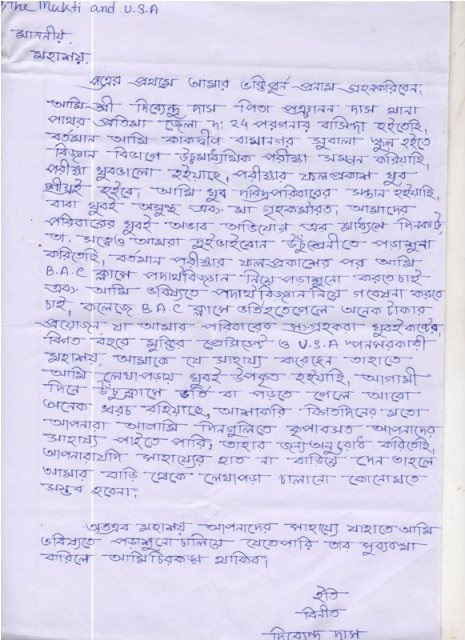 The Mukti and U.S.A
মাননীয়,
মহাশয়,
পত্রের প্রথমে আমার ভক্তিপূর্ন প্রনাম গ্রহনকরিবেন,
আমি শ্রী দিব্যেন্দু দাস পিতা পঞ্চানন দাস থানা
পাথর প্রতিমা জেলা দ: 24 পরগনার বাসিন্দা হইতেছি,
বর্তমান আমি কাকদ্বীপ বামানগর সুবালা স্কুল হইতে
বিজ্ঞান বিভাগে উচ্চমাধ্যমিক পরীক্ষা সম্পন্ন করিয়াছি,
পরীক্ষা খুবভালো হইয়াছে, পরীক্ষার ফলপ্রকাশ খুব
শ্রীঘ্রই হইবে, আমি খুব দরিদ্রপরিবারের সন্তান হইয়াছি,
বাবা খুবই অসুস্থ এবং মা গৃহকর্মরত, আমাদের
পরিবারের খুবই অভাব অভিযোগ এর মাধ্যমে দিনকাটে,
তা সত্বেও আমরা দুইভাইবোন উচ্চশ্রেনীতে পড়াশুনো
করিতেছি, বর্তমান পরীক্ষার ফলপ্রকাশের পর আমি
B.A.C ক্লাসে পদার্থবিজ্ঞান নিয়ে পড়াশুনো করতে চাই
এবং আমি ভবিষ্যতে পদার্থবিজ্ঞান নিয়ে গবেষনা করতে
চাই, কলেজে B.A.C ক্লাসে ভর্তিহতেগেলে অনেক টাকার
প্রয়োজন, যা আমার পরিবারের সংগ্রহকরা খুবই কষ্টের,
বিগত বছরে মুক্তির প্রেসিডেন্ট ও U.S.A স্পনসরকারী
মহাশয়, আমাকে যে সাহায্য করেছেন তাহাতে
আমি লেখাপড়ায় খুবই উপকৃত হইয়াছি, আগামী
দিনে উচ্চক্লাসে ভর্তি বা পড়তে গেলে আরো
অনেক খরচ বহিয়াছে, আশাকরি বিগতদিনের মতো
আপনারা আগামি দিনগুলিতে কৃপাবসত আপনাদের
সাহায্য পাইতে পারি, তাহার জন্য অনুরোধ করিতেছি,
আপনারাযদি সাহায্যের হাত না বাড়িয়ে দেন তাহলে
আমার বাড়ি থেকে লেখাপড়া চালানো কোনোমতে
সম্ভব হবেনা,
অতএব মহাশয়, আপনাদের সাহায্যে যাহাতে আমি
ভবিষ্যতে পড়াশুনো চালিয়ে যেতেপারি তার সুব্যবস্থা
করিলে আমি চিরকৃতজ্ঞ থাকিব,
ইতি
বিনীত
দিব্যেন্দু দাস